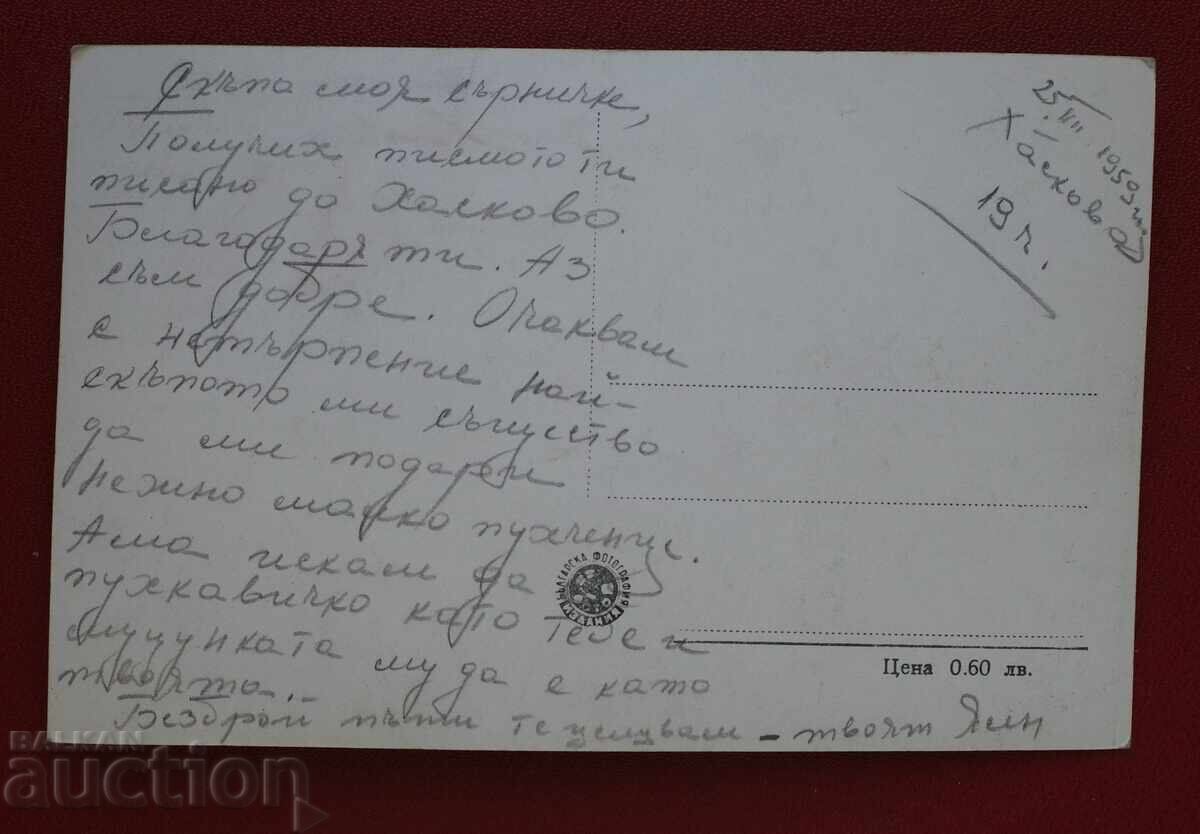 Скъпа моя сърничке,
Получих писмото ти
писано до Хасково.
Благодаря ти. Аз
съм добре. Очаквам
с нетърпение най-
скъпото ми същество
да ми подари
нежно малко пухченце.
Ама искам да е
пухкавичко като тебе и
муцунката му да е като
твоята.
Безброй пъти те целувам – твоят
25. 1959 г.
Хасково
19 ч.
БЪЛГАРСКА ФОТОГРАФИЯ
ИЗДАНИЯ
Цена 0.60 лв.
BALKAN
auction